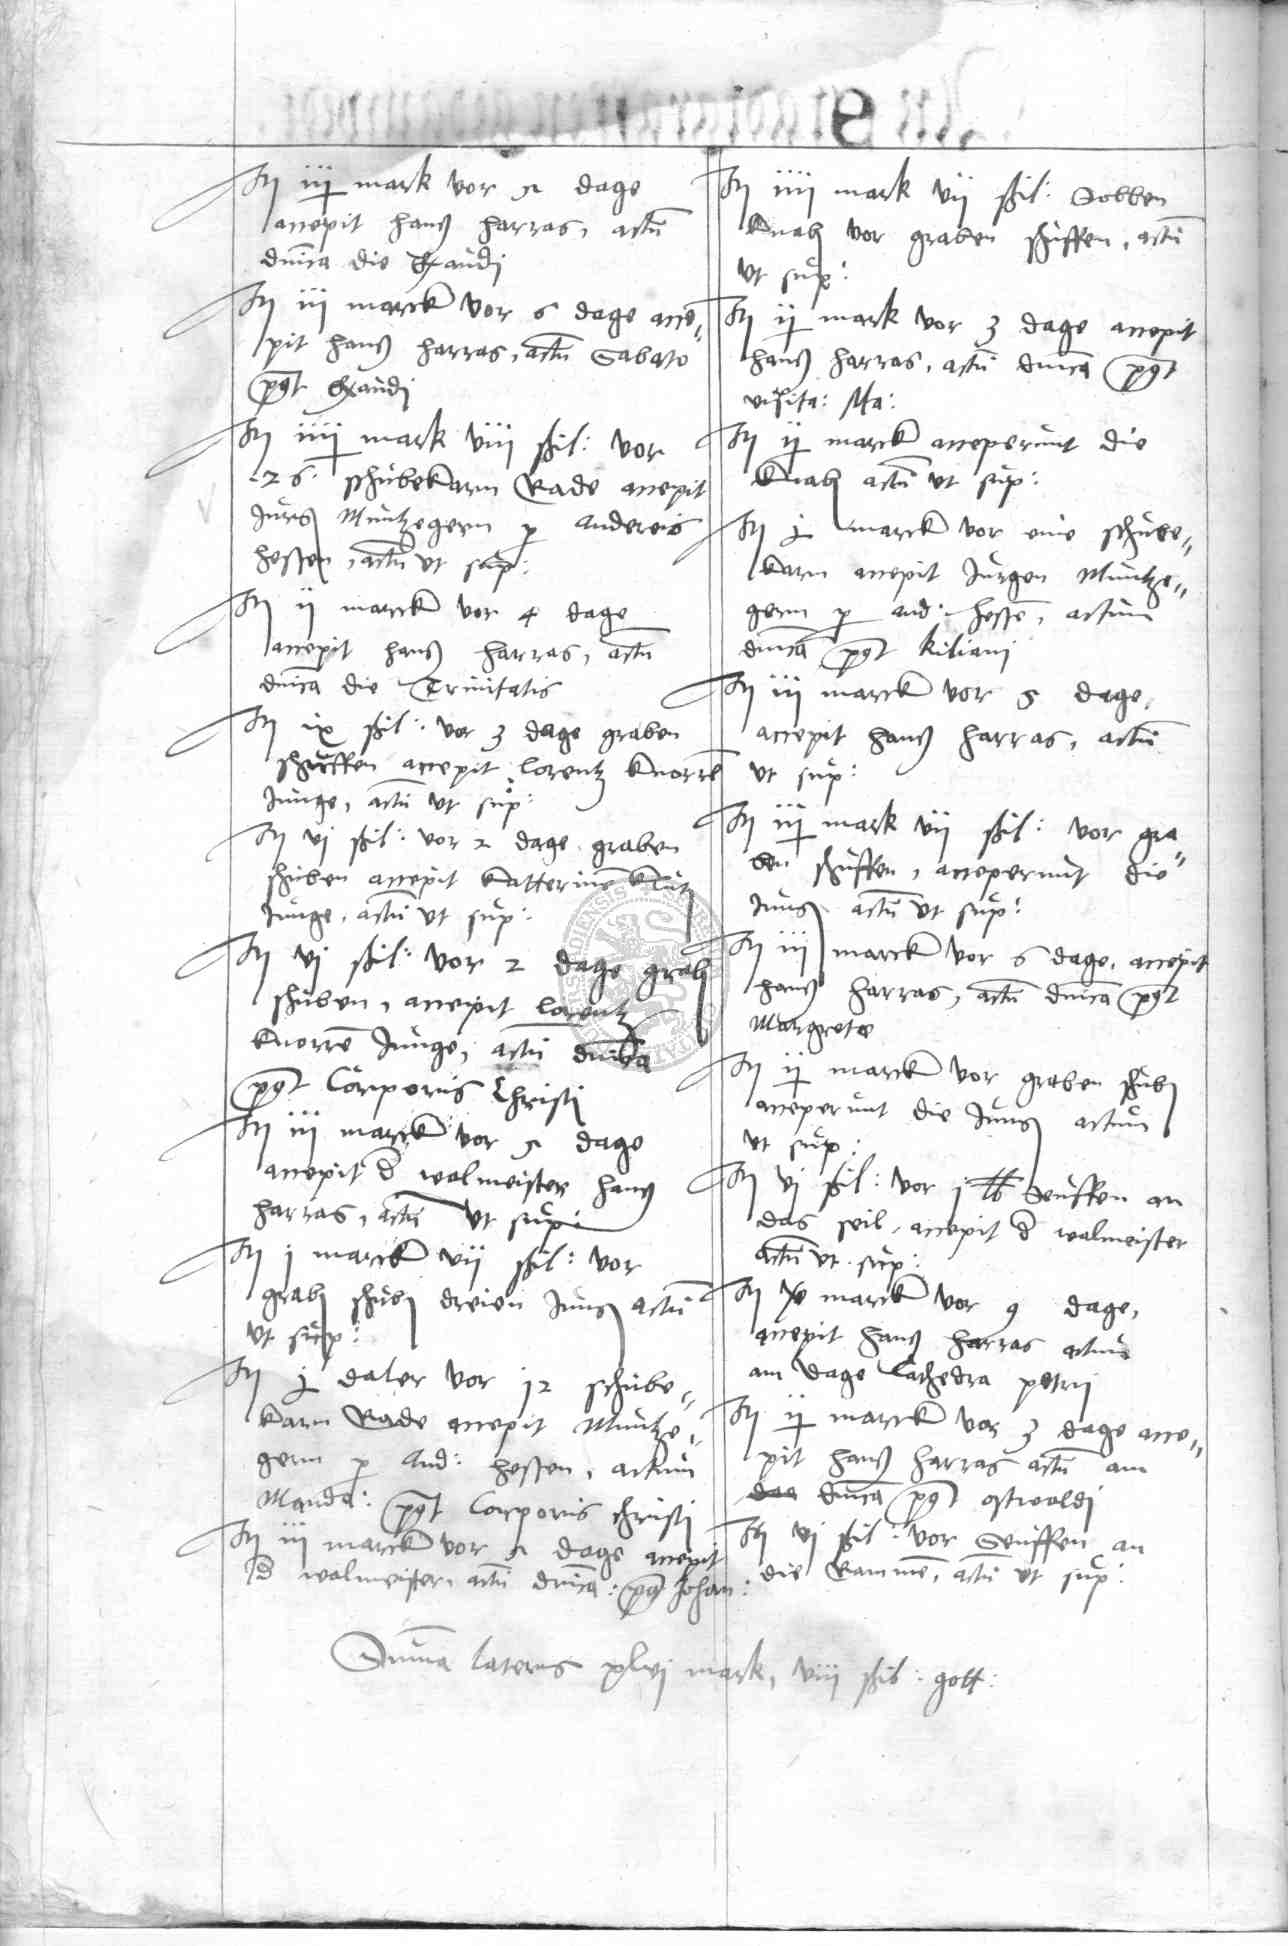 It iij mark vor 5 dage
accepit Hans Harras, actū
dnīca die Exaudi
It iii marck vor 6 dage acce-
pit Hans Harras, actū Sabato
post Exaudi
It iiij mark viii ßil: vor
26 schubekarn Rade accepit
Jurg Muntzegern p Andereis
Hessen, actū ut sup:
It ii marck vor 4 dage
accepit Hans Harras, actū
dnīca die Trinitatis
It ix ßil: vor 3 dage graben
schuffen accepit Lorentz Knorrē
Junge, actū ut sup:
It vj ßil: vor 2 dage graben
schuben accepit Katterinē
Junge, actū ut sup:
It vj ßil: vor 2 dage grabē
schuben, accepit Lorentz
Knorrē Junge, actū dnīca
post Corporis Christi
It iii marck vor 5 dage
accepit d walmeister Hans
Harras, actū ut sup:
It j marck vii ßil: vor
grabē schubē dreien Jungē actū
ut sup:
It j daler vor 12 schube-
karn Rade accepit Muntze-
gern p And: Hessen, actum
Manda: post Corporis Christi
It iii marck vor 5 dage accepit
d walmeister, actū dnīca: post Johan:
It iiii mark vii ßil:
Knabē vor graben schuffen, actū
ut sup:
It ij mark vor 3 dage accepit
Hans Harras, actū dnīca post
visita: Ma:
It ij marck acceperunt die
Knabē actū ut sup:
It j marck vor eine schube-
karn accepit Jurgen Muntze-
gern p And: Hessē, actum
dnīca post Kiliani
It iii marck vor 5 dage,
accepit Hans Harras, actū
ut sup:
It iij mark vii ßil: vor gra-
ben schuffen, acceperunt die
Jungē actū ut sup:
It iii marck vor 6 dage, accepit
Hans Harras, actū dnīca post
Margrete
It ij marck vor graben schubē
acceperunt die Jungē actum
ut sup:
It vj ßil: vor j lb Seuffen an
das seil, accepit d walmeister
actū ut sup:
It marck vor 9 dage,
accepit Hans Harras actum
am dage Cathedra petrij
It ij marck vor 3 dage acce-
pit Hans Harras actū am
dnīca post ostwaldi
It vj ßil: vor Seuffen an
die Rammē, actū ut sup:
Suma lateris xlvj mark, viii ßil: gott: